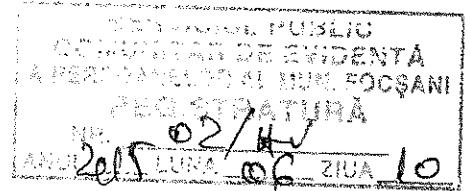 SERVICIUL PUBLIC
COMUNITAR DE EVIDENTĂ
A PERSOANELOR AL MUN. FOCȘANI
REGISTRATURĂ
NR. 02/
ANUL 2015 LUNA 06 ZIUA 10